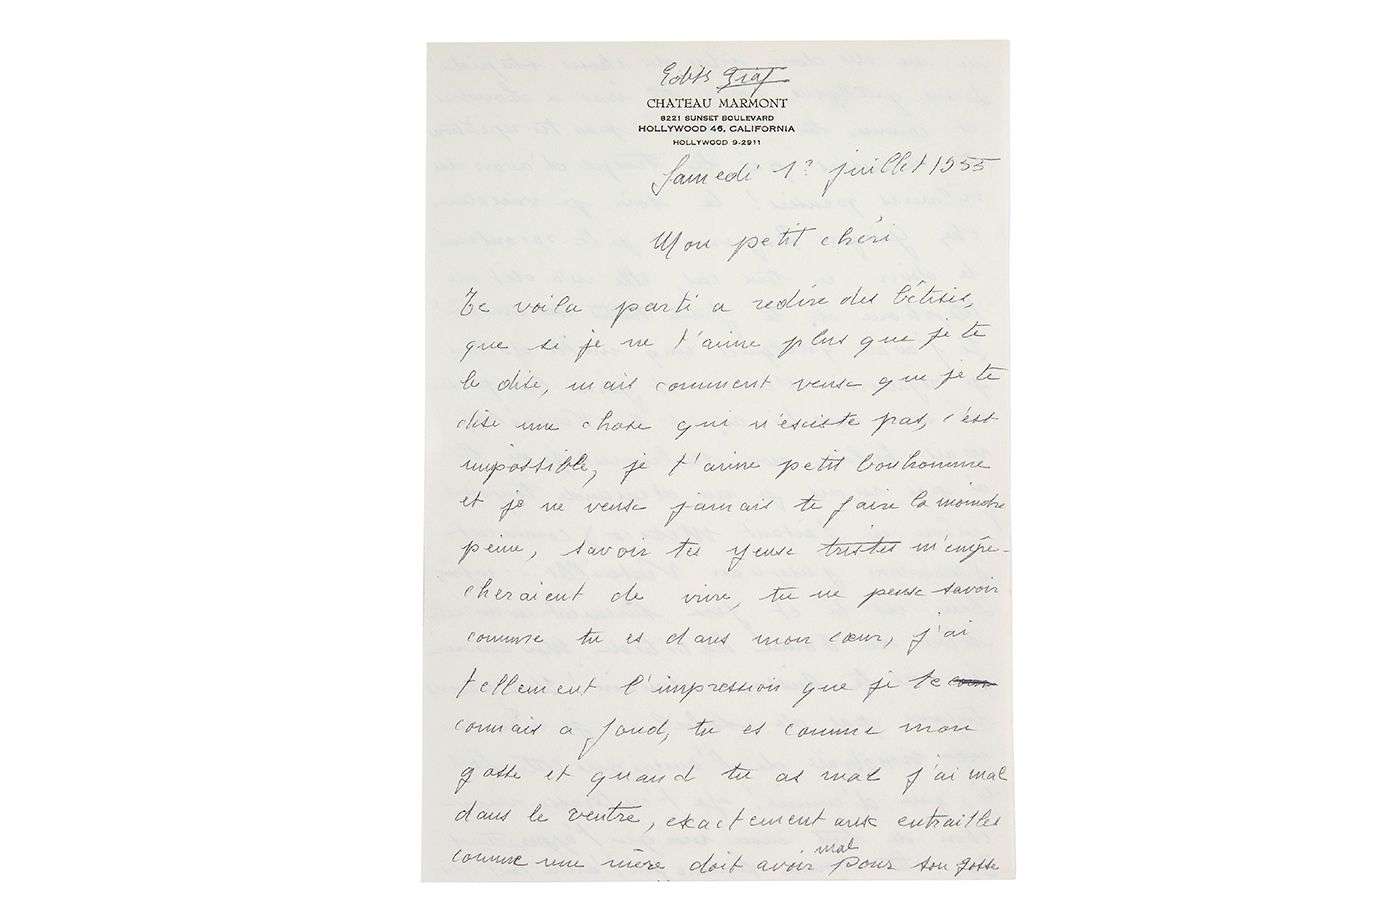 Edith Piaf
CHATEAU MARMONT
8221 SUNSET BOULEVARD
HOLLYWOOD 46, CALIFORNIA
HOLLYWOOD 9-2911
Samedi 1? juillet 1955
Mon petit chéri
Te voila parti a redire des bêtises,
que si je ne t'aime plus que je te
le dise, mais comment veux que je te
dise une chose qui n'existe pas, c'est
impossible, je t'aime petit bonhomme
et je ne veux jamais te faire la moindre
peine, savoir tes yeux tristes m'empe-
cheraient de vivre, tu ne peux savoir
comme tu es dans mon cœur, j'ai
tellement l'impression que je te
connais a fond, tu es comme mon
gosse et quand tu as mal j'ai mal
dans le ventre, exactement aux entrailles
comme une mère doit avoir mal pour son gosse